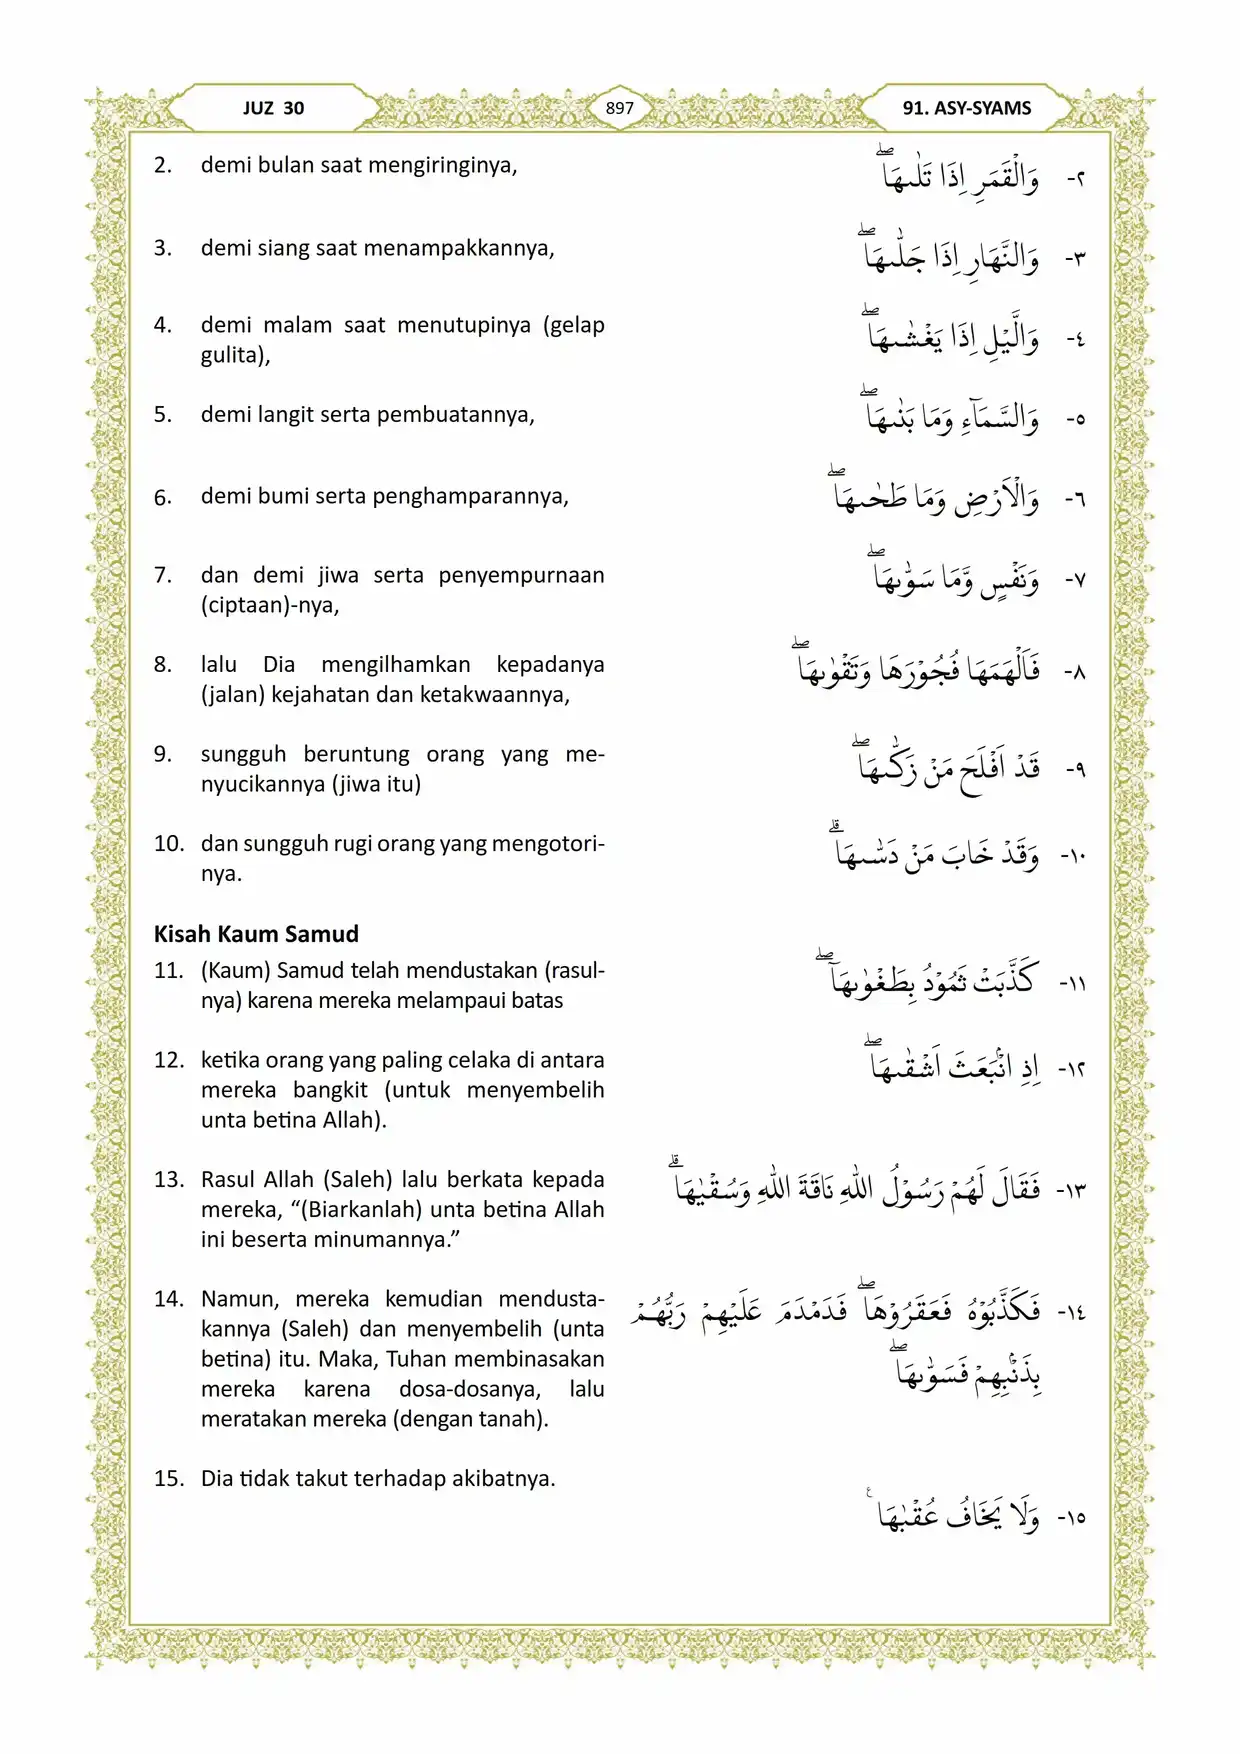 JUZ 30
897
91. ASY-SYAMS
2. demi bulan saat mengiringinya,
وَالْقَمَرِ اِذَا تَلٰىهَاۖ ٢-
3. demi siang saat menampakkannya,
وَالنَّهَارِ اِذَا جَلّٰىهَاۖ ٣-
4. demi malam saat menutupinya (gelap
gulita),
وَالَّيْلِ اِذَا يَغْشٰىهَاۖ ٤-
5. demi langit serta pembuatannya,
وَالسَّمَاۤءِ وَمَا بَنٰىهَاۖ ٥-
6. demi bumi serta penghamparannya,
وَالْاَرْضِ وَمَا طَحٰىهَاۖ ٦-
7. dan demi jiwa serta penyempurnaan
(ciptaan)-nya,
وَنَفْسٍ وَّمَا سَوّٰىهَاۖ ٧-
8. lalu Dia mengilhamkan kepadanya
(jalan) kejahatan dan ketakwaannya,
فَاَلْهَمَهَا فُجُوْرَهَا وَتَقْوٰىهَاۖ ٨-
9. sungguh beruntung orang yang me-
nyucikannya (jiwa itu)
قَدْ اَفْلَحَ مَنْ زَكّٰىهَاۖ ٩-
10. dan sungguh rugi orang yang mengotori-
nya.
وَقَدْ خَابَ مَنْ دَسّٰىهَاۗ ١٠-
Kisah Kaum Samud
11. (Kaum) Samud telah mendustakan (rasul-
nya) karena mereka melampaui batas
كَذَّبَتْ ثَمُوْدُ بِطَغْوٰىهَآ ۖ ١١-
12. ketika orang yang paling celaka di antara
mereka bangkit (untuk menyembelih
unta betina Allah).
اِذِ انْۢبَعَثَ اَشْقٰىهَاۖ ١٢-
13. Rasul Allah (Saleh) lalu berkata kepada
mereka, “(Biarkanlah) unta betina Allah
ini beserta minumannya.”
فَقَالَ لَهُمْ رَسُوْلُ اللّٰهِ نَاقَةَ اللّٰهِ وَسُقْيٰهَاۗ ١٣-
14. Namun, mereka kemudian mendusta-
kannya (Saleh) dan menyembelih (unta
betina) itu. Maka, Tuhan membinasakan
mereka karena dosa-dosanya, lalu
meratakan mereka (dengan tanah).
فَكَذَّبُوْهُ فَعَقَرُوْهَاۖ فَدَمْدَمَ عَلَيْهِمْ رَبُّهُمْ ١٤-
بِذَنْۢبِهِمْ فَسَوّٰىهَاۖ
15. Dia tidak takut terhadap akibatnya.
وَلَا يَخَافُ عُقْبٰهَا ࣖ ١٥-